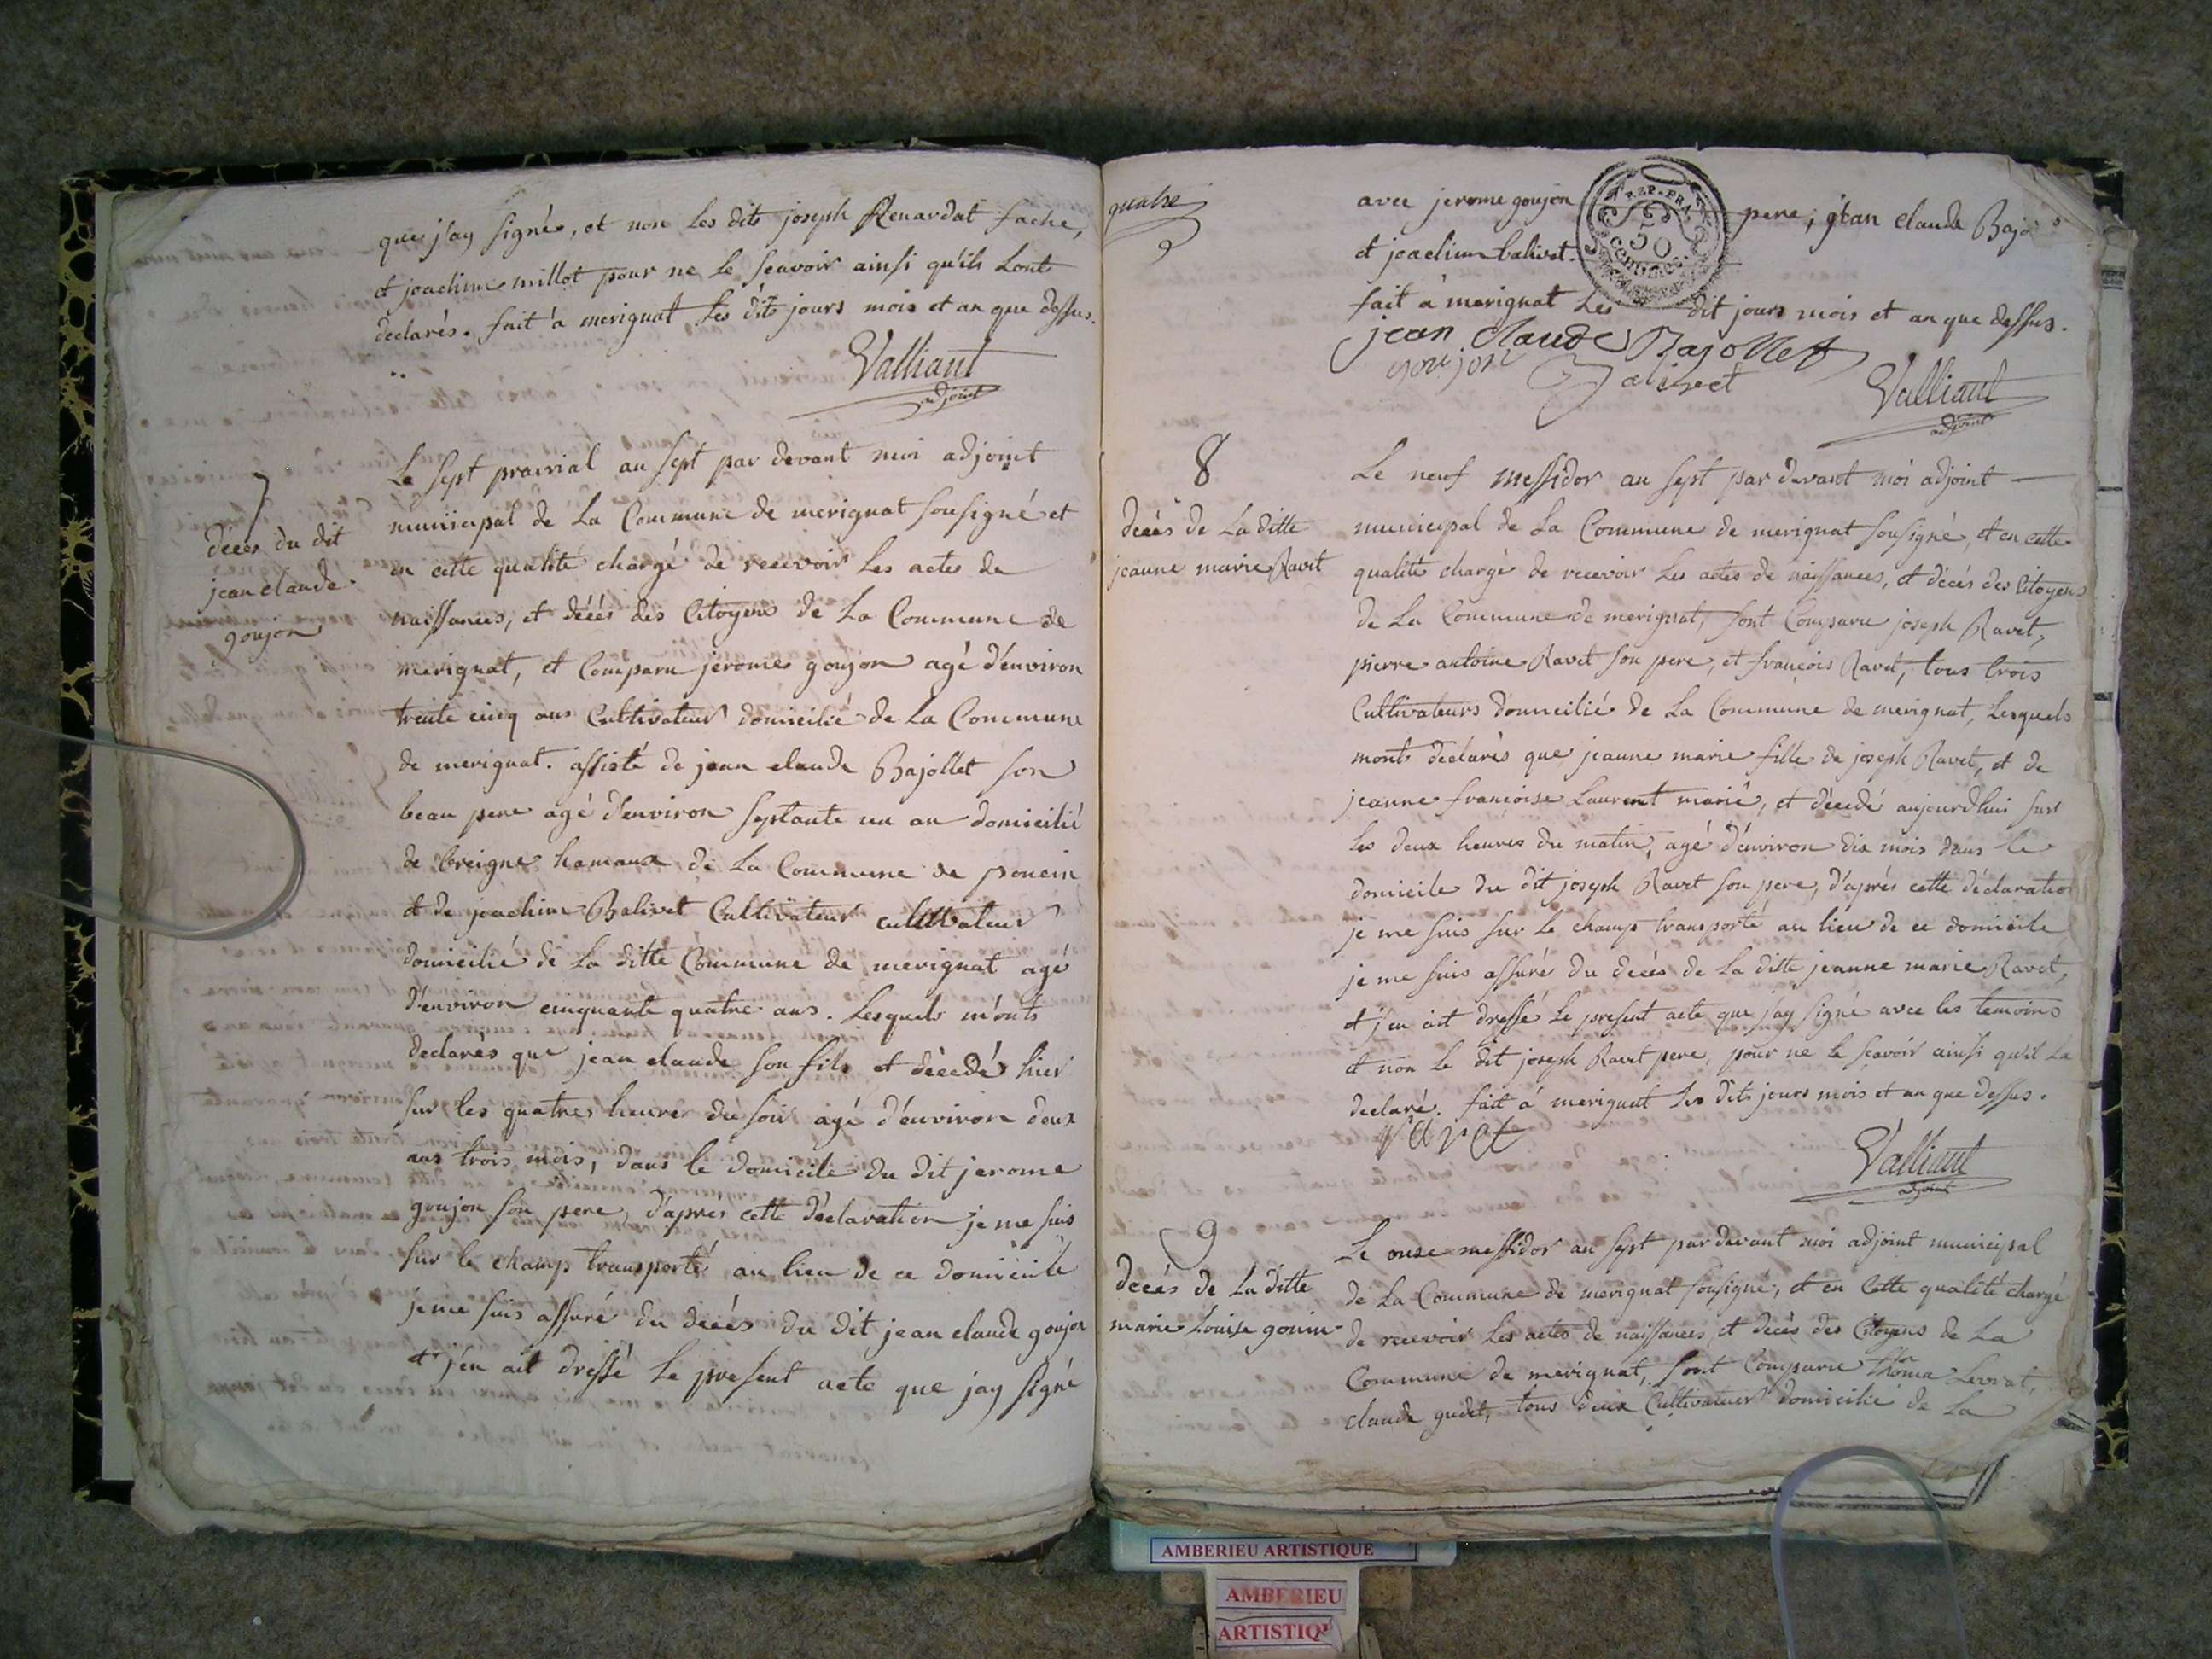 que j'ay signé, et non les dits joseph Renardat fache,
et joachim millot pour ne le scavoir ainsi qu'ils lont
declarés. fait à merignat les dits jours mois et an que dessus.
Valliant
adjoint
7
décès du dit
jean claude
goujon
Le sept prairial an sept par devant moi adjoint
municipal de La Commune de merignat sousigné et
en cette qualité chargé de recevoir les actes de
naissances, et décès des Citoyens de La Commune de
merignat, et Comparu jerome goujon agé d'environ
trente cinq ans Cultivateur domicilié de La Commune
de merignat. assisté de jean claude Bajollet son
beau pere agé d'environ septante un an domicilié
de breigne hamaux de La Commune de poncin
et de joachim Balivet Cultivateur cultivateur
domicilié de La ditte Commune de merignat agé
d'environ cinquante quatre ans. Lesquels m'onts
declarés que jean claude son fils et décedé hier
sur les quatres heures du soir agé d'environ deux
ans trois mois, dans le domicile du dit jerome
goujon son pere, d'aprés cette déclaration je me suis
sur le champ transporté au lieu de ce domicile
je me suis assuré du décés du dit jean claude goujon
et j'en ait dressé le present acte que j'ay signé
quatre
avec jerome goujon pere, jean claude Bajo
et joachim balivet.
REP. FRA.
50
CENTIMES
fait à merignat Les dit jours mois et an que dessus.
jean claude Bajollet
goujon
Balivet
Valliant
adjoint
8
décés de La ditte
jeanne marie Ravet
Le neuf messidor an sept par devant moi adjoint
municipal de La Commune de merignat sousigné, et en cette
qualité chargé de recevoir les actes de naissances, et décès des Citoyens
de La Commune de merignat, sont Comparu joseph Ravet,
pierre antoine Ravet son pere, et françois Ravet, tous trois
Cultivateurs domicilié de La Commune de merignat, Lesquels
mont declarés que jeanne marie fille de joseph Ravet, et de
jeanne françoise Laurent marié, et décedé aujourdhui sur
les deux heures du matin, agé d'environ dix mois dans le
domicile du dit joseph Ravet son pere, d'aprés cette déclaration
je me suis sur le champ transporté au lieu de ce domicile
je me suis assuré du decés de la ditte jeanne marie Ravet,
et j'en ait dressé Le present acte que j'ay signé avec les temoins
et non le dit joseph Ravet pere, pour ne le sçavoir ainsi qu'il La
declaré. fait à merignat les dits jours mois et an que dessus.
ravet
Valliant
adjoint
9
Decés de La ditte
marie Louise gouin
Le onze messidor an sept par devant moi adjoint municipal
de La Commune de merignat sousigné, et en Cette qualité chargé
de recevoir les actes de naissances et decès des Citoyens de La
Commune de merignat, sont Comparu thoma Levrat,
claude gudet, tous deux Cultivateurs domicilié de La
AMBERIEU ARTISTIQUE
AMBERIEU
ARTISTIQ